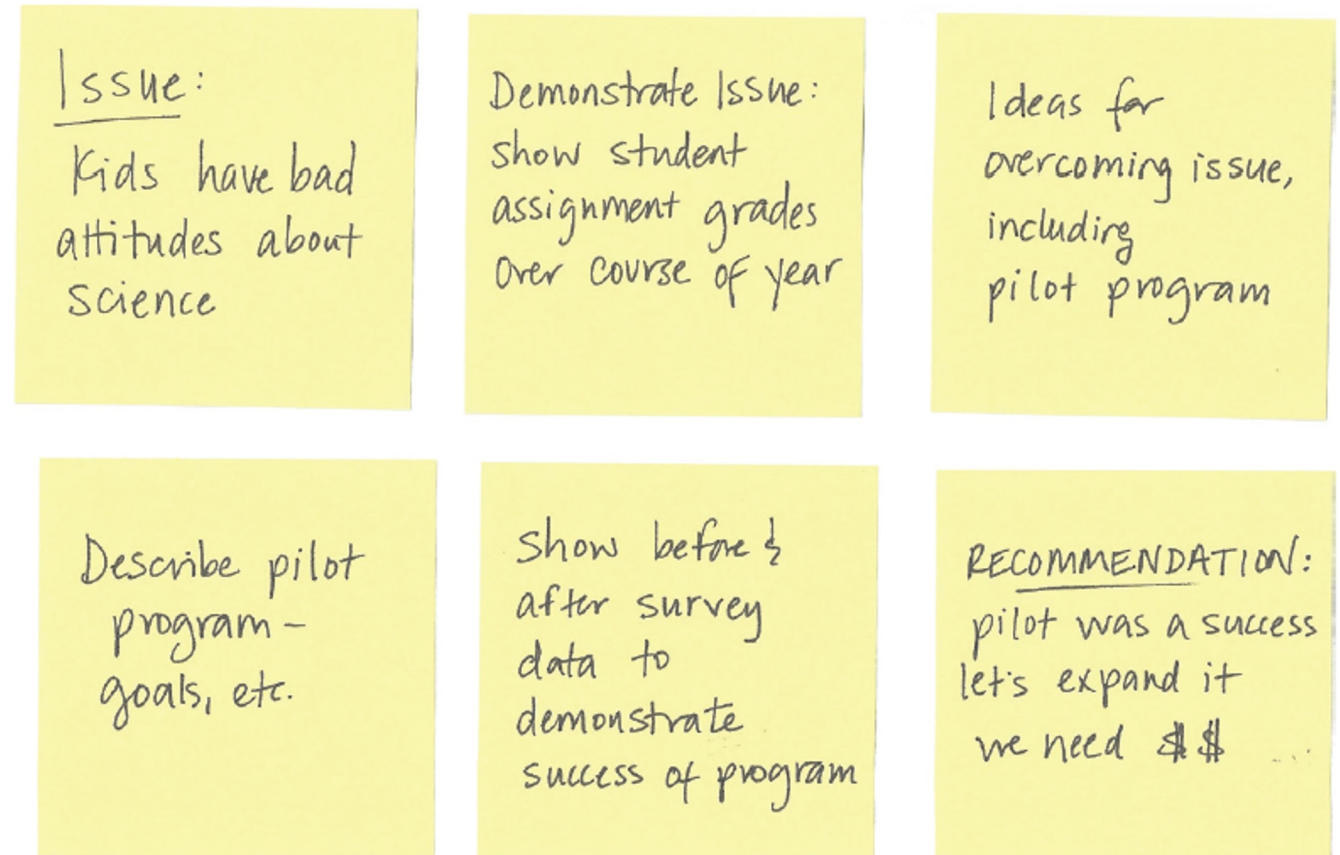 Issue:
Kids have bad
attitudes about
science
Demonstrate Issue:
show student
assignment grades
over course of year
Ideas for
overcoming issue,
including
pilot program
Describe pilot
program -
goals, etc.
Show before &
after survey
data to
demonstrate
success of program
RECOMMENDATION:
pilot was a success
let's expand it
we need $$